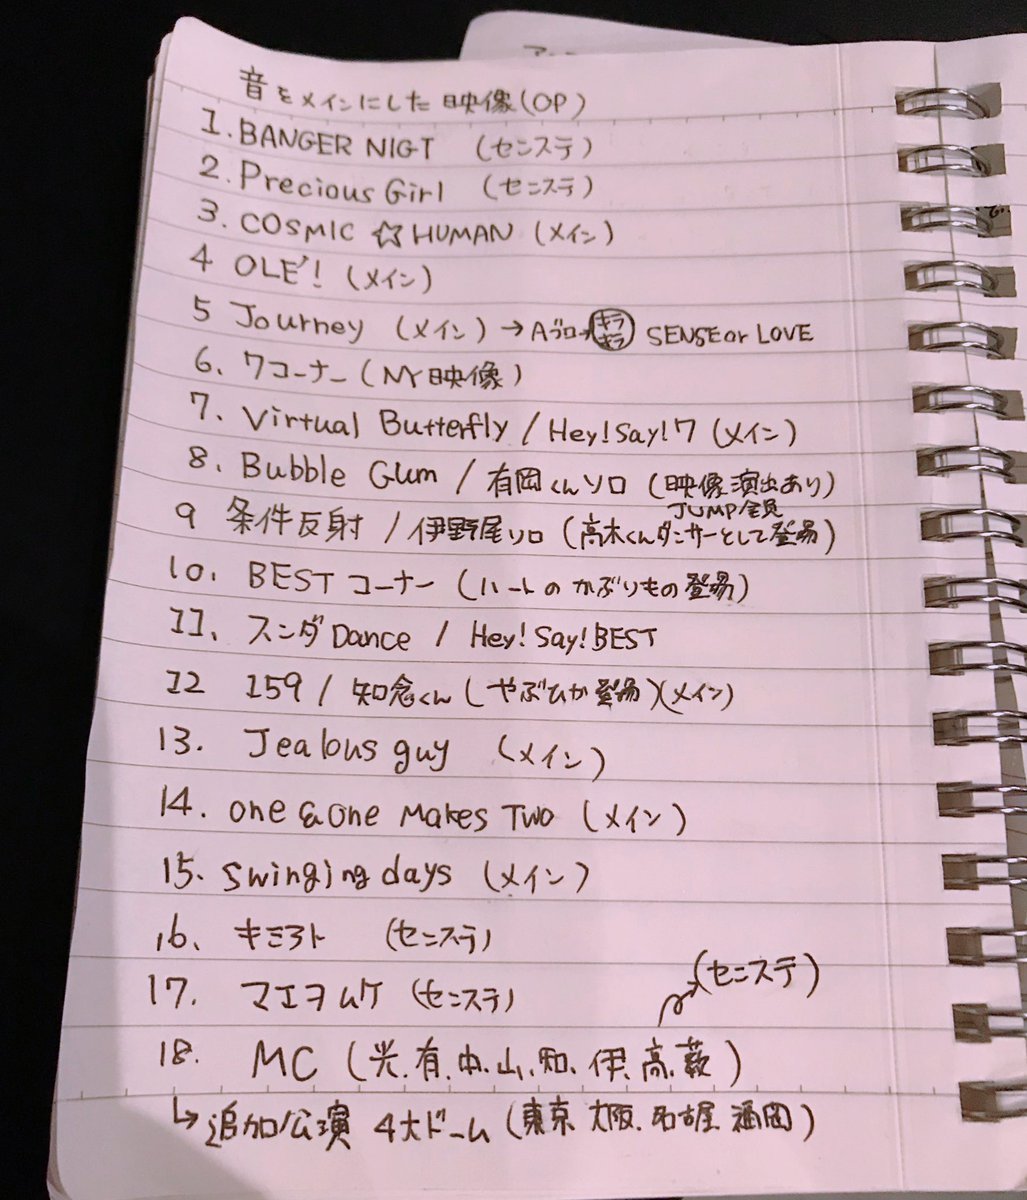 音をメインにした映像(OP)
1. BANGER NIGT (センステ)
2. Precious Girl (センステ)
3. COSMIC ☆ HUMAN (メイン)
4 OLE'! (メイン)
5 Journey (メイン) → Aブロ→ キラキラ SENSE or LOVE
6. 7コーナー (NY映像)
7. Virtual Butterfly / Hey!Say!7 (メイン)
8. Bubble Gum / 有岡くんソロ (映像演出あり)
JUMP全員
9 条件反射 / 伊野尾ソロ (高木くんダンサーとして登場)
10. BESTコーナー (ハートのかぶりもの登場)
11. スンダDance / Hey!Say!BEST
12 159 / 知念くん (やぶひか登場)(メイン)
13. Jealous guy (メイン)
14. one & one Makes Two (メイン)
15. Swinging days (メイン)
16. キミアト (センステ)
17. マエヲムケ (センステ)
(センステ)
18. MC (光.有.中.山.知.伊.高.薮)
↳ 追加公演 4大ドーム (東京.大阪.名古屋.福岡)